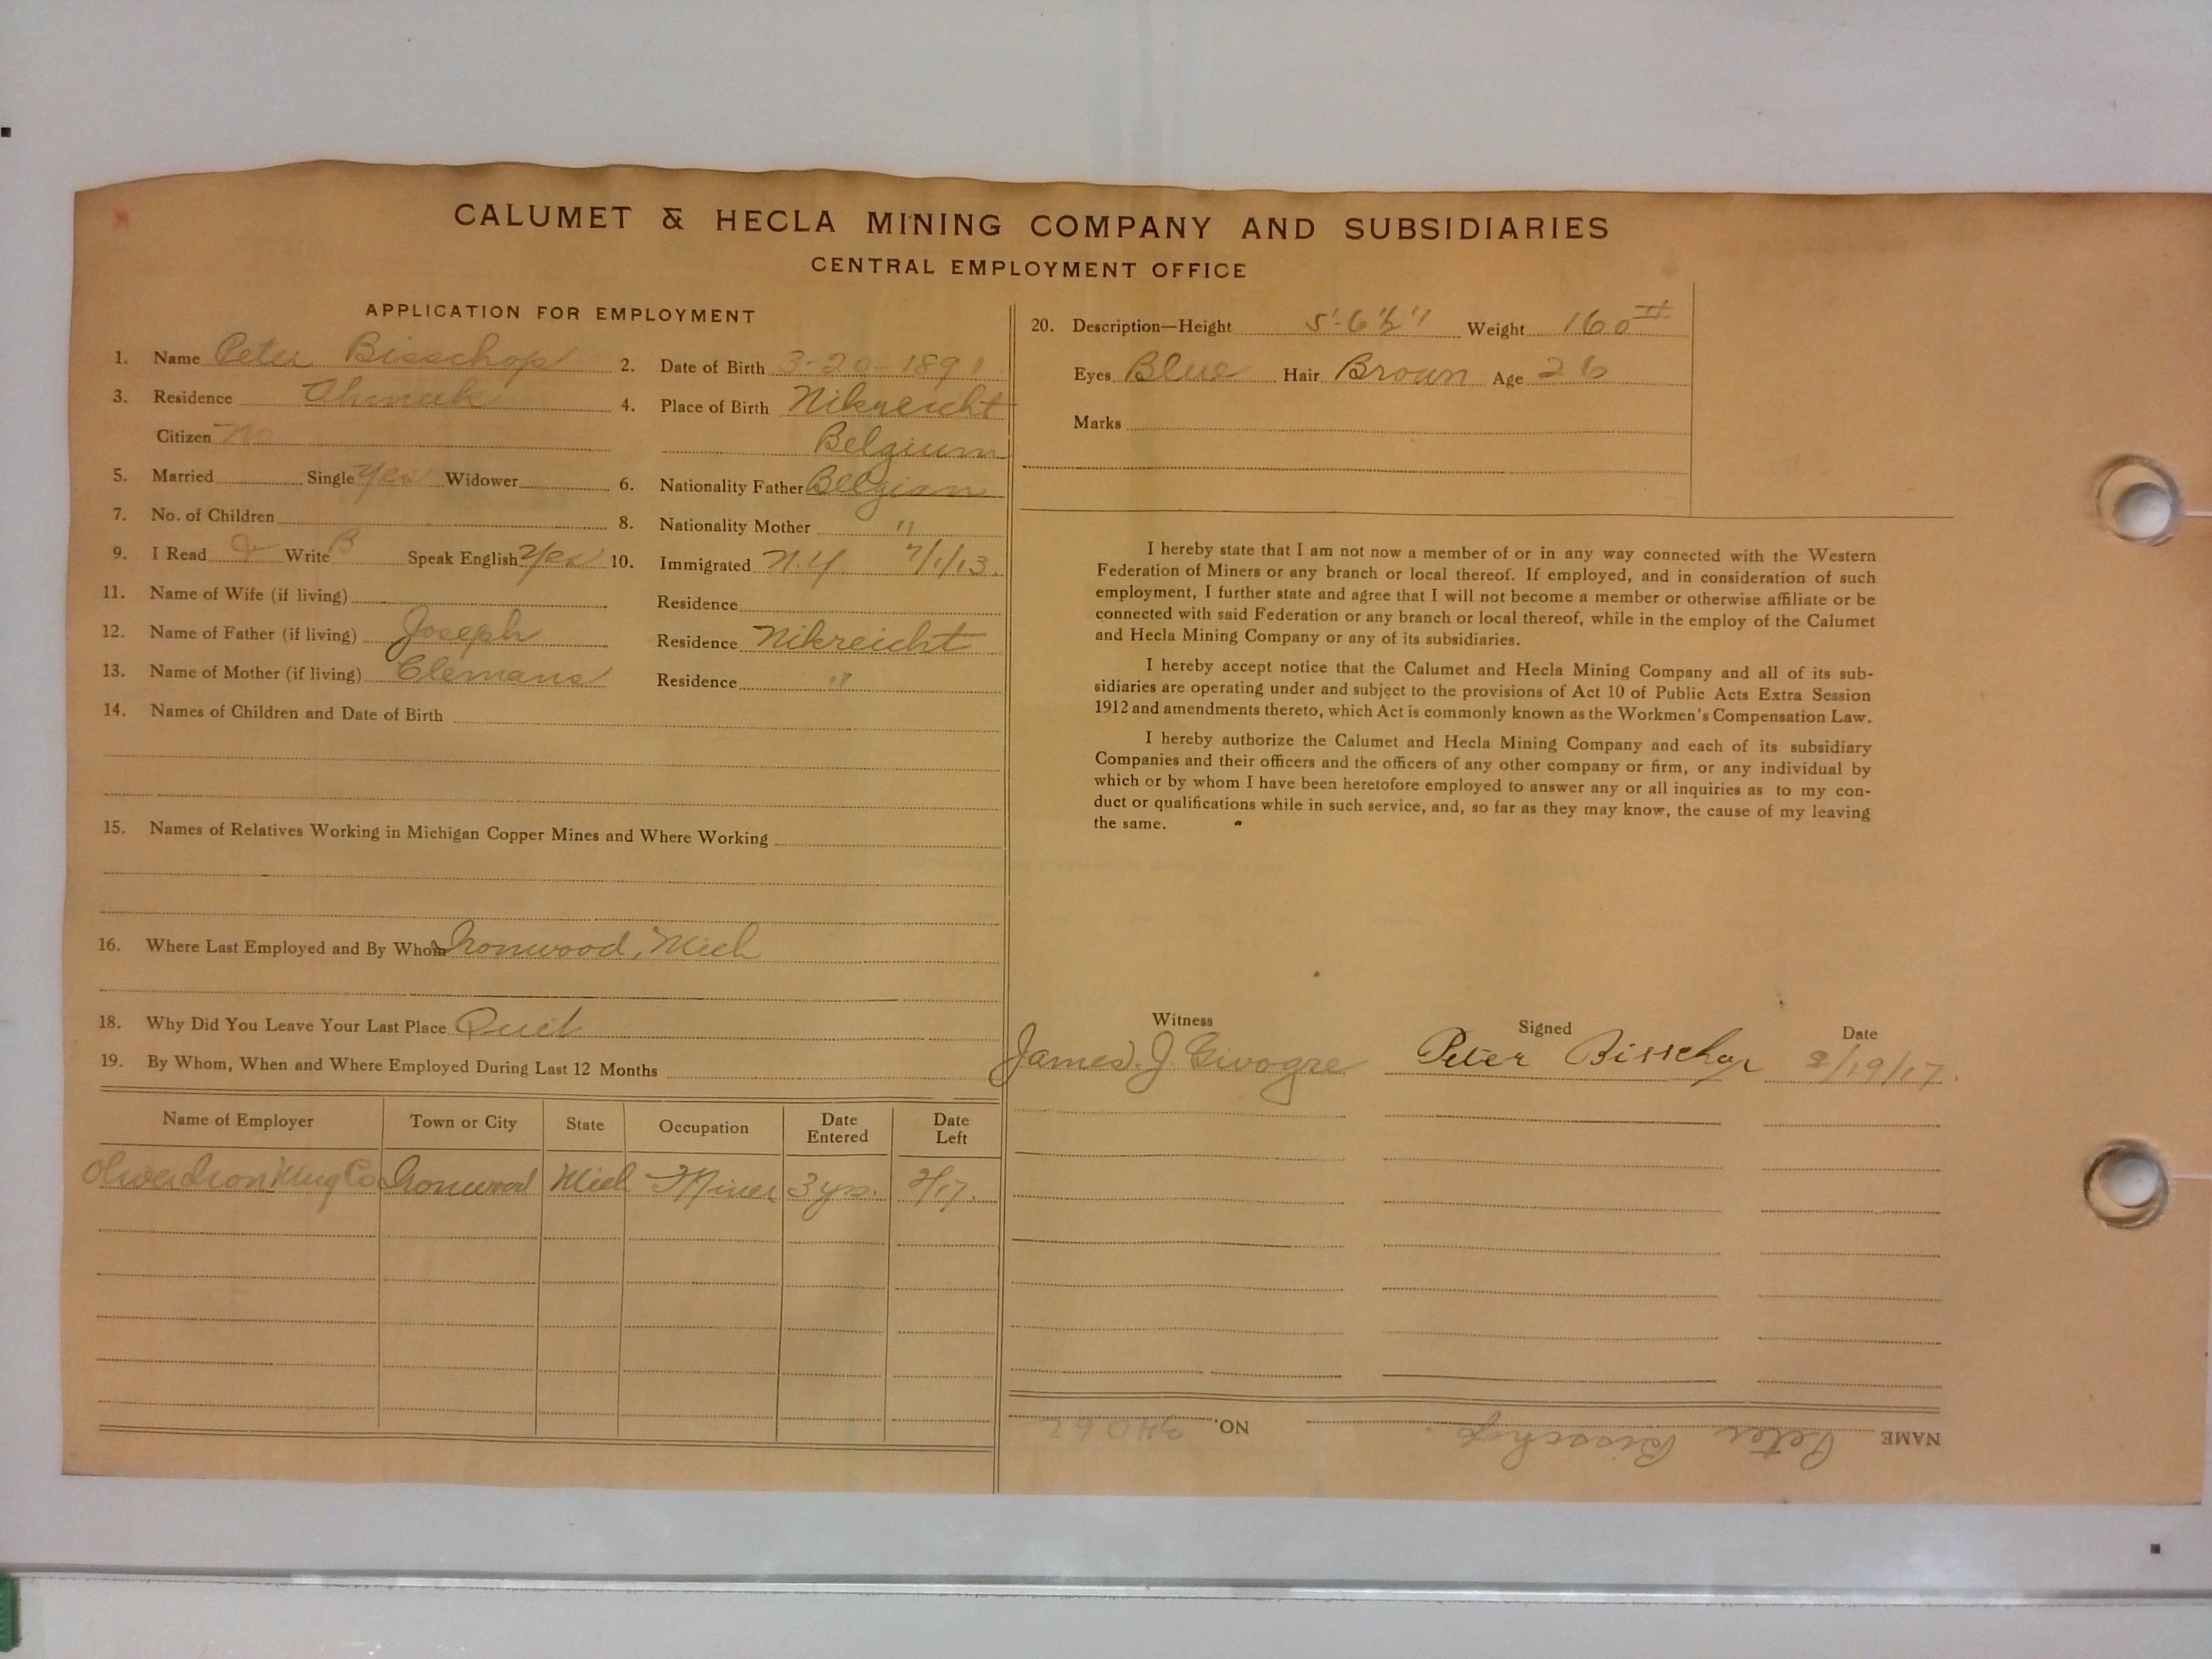 CALUMET & HECLA MINING COMPANY AND SUBSIDIARIES
CENTRAL EMPLOYMENT OFFICE
APPLICATION FOR EMPLOYMENT
1. Name Peter Bisschop 2. Date of Birth 3-20-1891
3. Residence Ahmeek 4. Place of Birth Nikreicht
Citizen No Belgium
5. Married Single Yes Widower 6. Nationality Father Belgian
7. No. of Children 8. Nationality Mother "
9. I Read Write B Speak English Yes 10. Immigrated N.Y. 7/1/13.
11. Name of Wife (if living) Residence
12. Name of Father (if living) Joseph Residence Nikreicht
13. Name of Mother (if living) Clemans Residence "
14. Names of Children and Date of Birth
15. Names of Relatives Working in Michigan Copper Mines and Where Working
16. Where Last Employed and By Whom Ironwood, Mich
18. Why Did You Leave Your Last Place Quit
19. By Whom, When and Where Employed During Last 12 Months
Name of Employer Town or City State Occupation Date Entered Date Left
Oliver Iron Mng Co Ironwood Mich Miner 3 yrs. 2/17.
20. Description—Height 5'-6½" Weight 160#
Eyes Blue Hair Brown Age 26
Marks
I hereby state that I am not now a member of or in any way connected with the Western
Federation of Miners or any branch or local thereof. If employed, and in consideration of such
employment, I further state and agree that I will not become a member or otherwise affiliate or be
connected with said Federation or any branch or local thereof, while in the employ of the Calumet
and Hecla Mining Company or any of its subsidiaries.
I hereby accept notice that the Calumet and Hecla Mining Company and all of its sub-
sidiaries are operating under and subject to the provisions of Act 10 of Public Acts Extra Session
1912 and amendments thereto, which Act is commonly known as the Workmen's Compensation Law.
I hereby authorize the Calumet and Hecla Mining Company and each of its subsidiary
Companies and their officers and the officers of any other company or firm, or any individual by
which or by whom I have been heretofore employed to answer any or all inquiries as to my con-
duct or qualifications while in such service, and, so far as they may know, the cause of my leaving
the same.
Witness Signed Date
James. J. Peter Bisschop /19/17.
NAME Peter Bisschop. NO. 34062